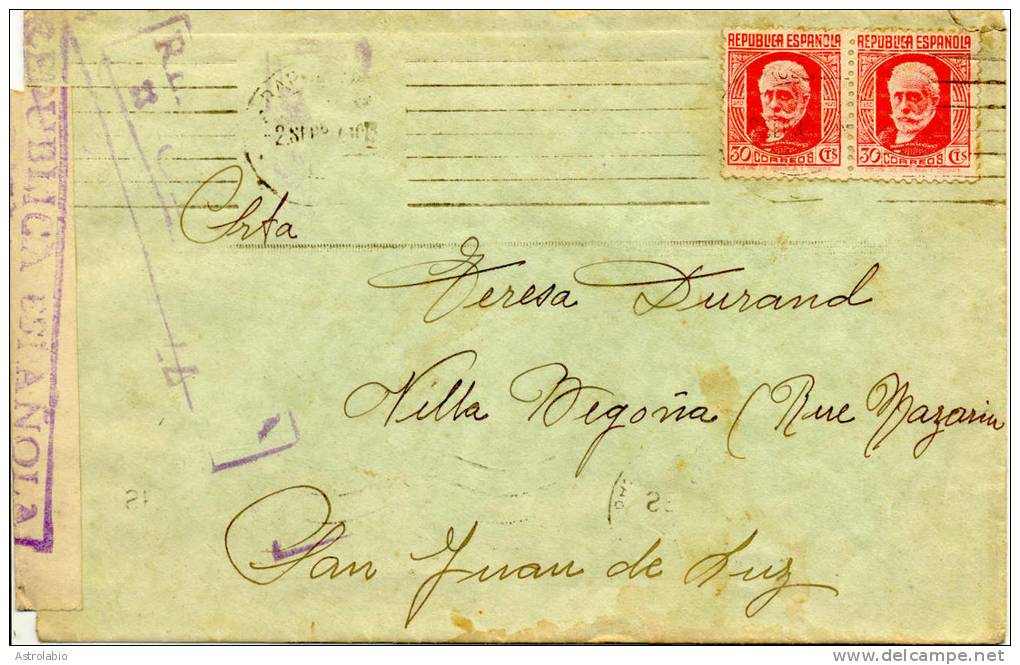 REPUBLICA ESPAÑOLA
REPUBLICA ESPAÑOLA
30 CORREOS CTS
30 CORREOS CTS
Srta
Teresa Durand
Villa Begoña (Rue Mazarin
San Juan de Luz
REPUBLICA ESPAÑOLA
Astrolabio
delcampe.net